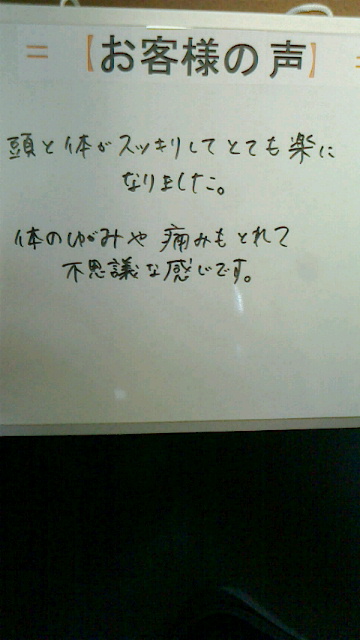 =【お客様の声】=
頭と体がスッキリしてとても楽に
なりました。
体のゆがみや痛みもとれて
不思議な感じです。